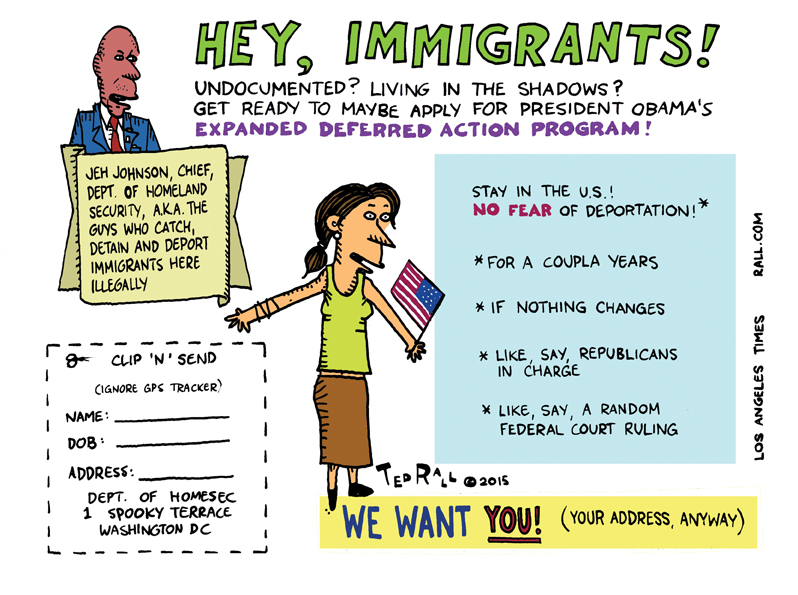 HEY, IMMIGRANTS!
UNDOCUMENTED? LIVING IN THE SHADOWS?
GET READY TO MAYBE APPLY FOR PRESIDENT OBAMA'S
EXPANDED DEFERRED ACTION PROGRAM!
JEH JOHNSON, CHIEF,
DEPT. OF HOMELAND
SECURITY, A.K.A. THE
GUYS WHO CATCH,
DETAIN AND DEPORT
IMMIGRANTS HERE
ILLEGALLY
STAY IN THE U.S.!
NO FEAR OF DEPORTATION!*
* FOR A COUPLA YEARS
* IF NOTHING CHANGES
* LIKE, SAY, REPUBLICANS
IN CHARGE
* LIKE, SAY, A RANDOM
FEDERAL COURT RULING
CLIP 'N' SEND
(IGNORE GPS TRACKER)
NAME:
DOB:
ADDRESS:
DEPT. OF HOMESEC
1 SPOOKY TERRACE
WASHINGTON DC
TED RALL ©2015
WE WANT YOU! (YOUR ADDRESS, ANYWAY)
LOS ANGELES TIMES RALL.COM